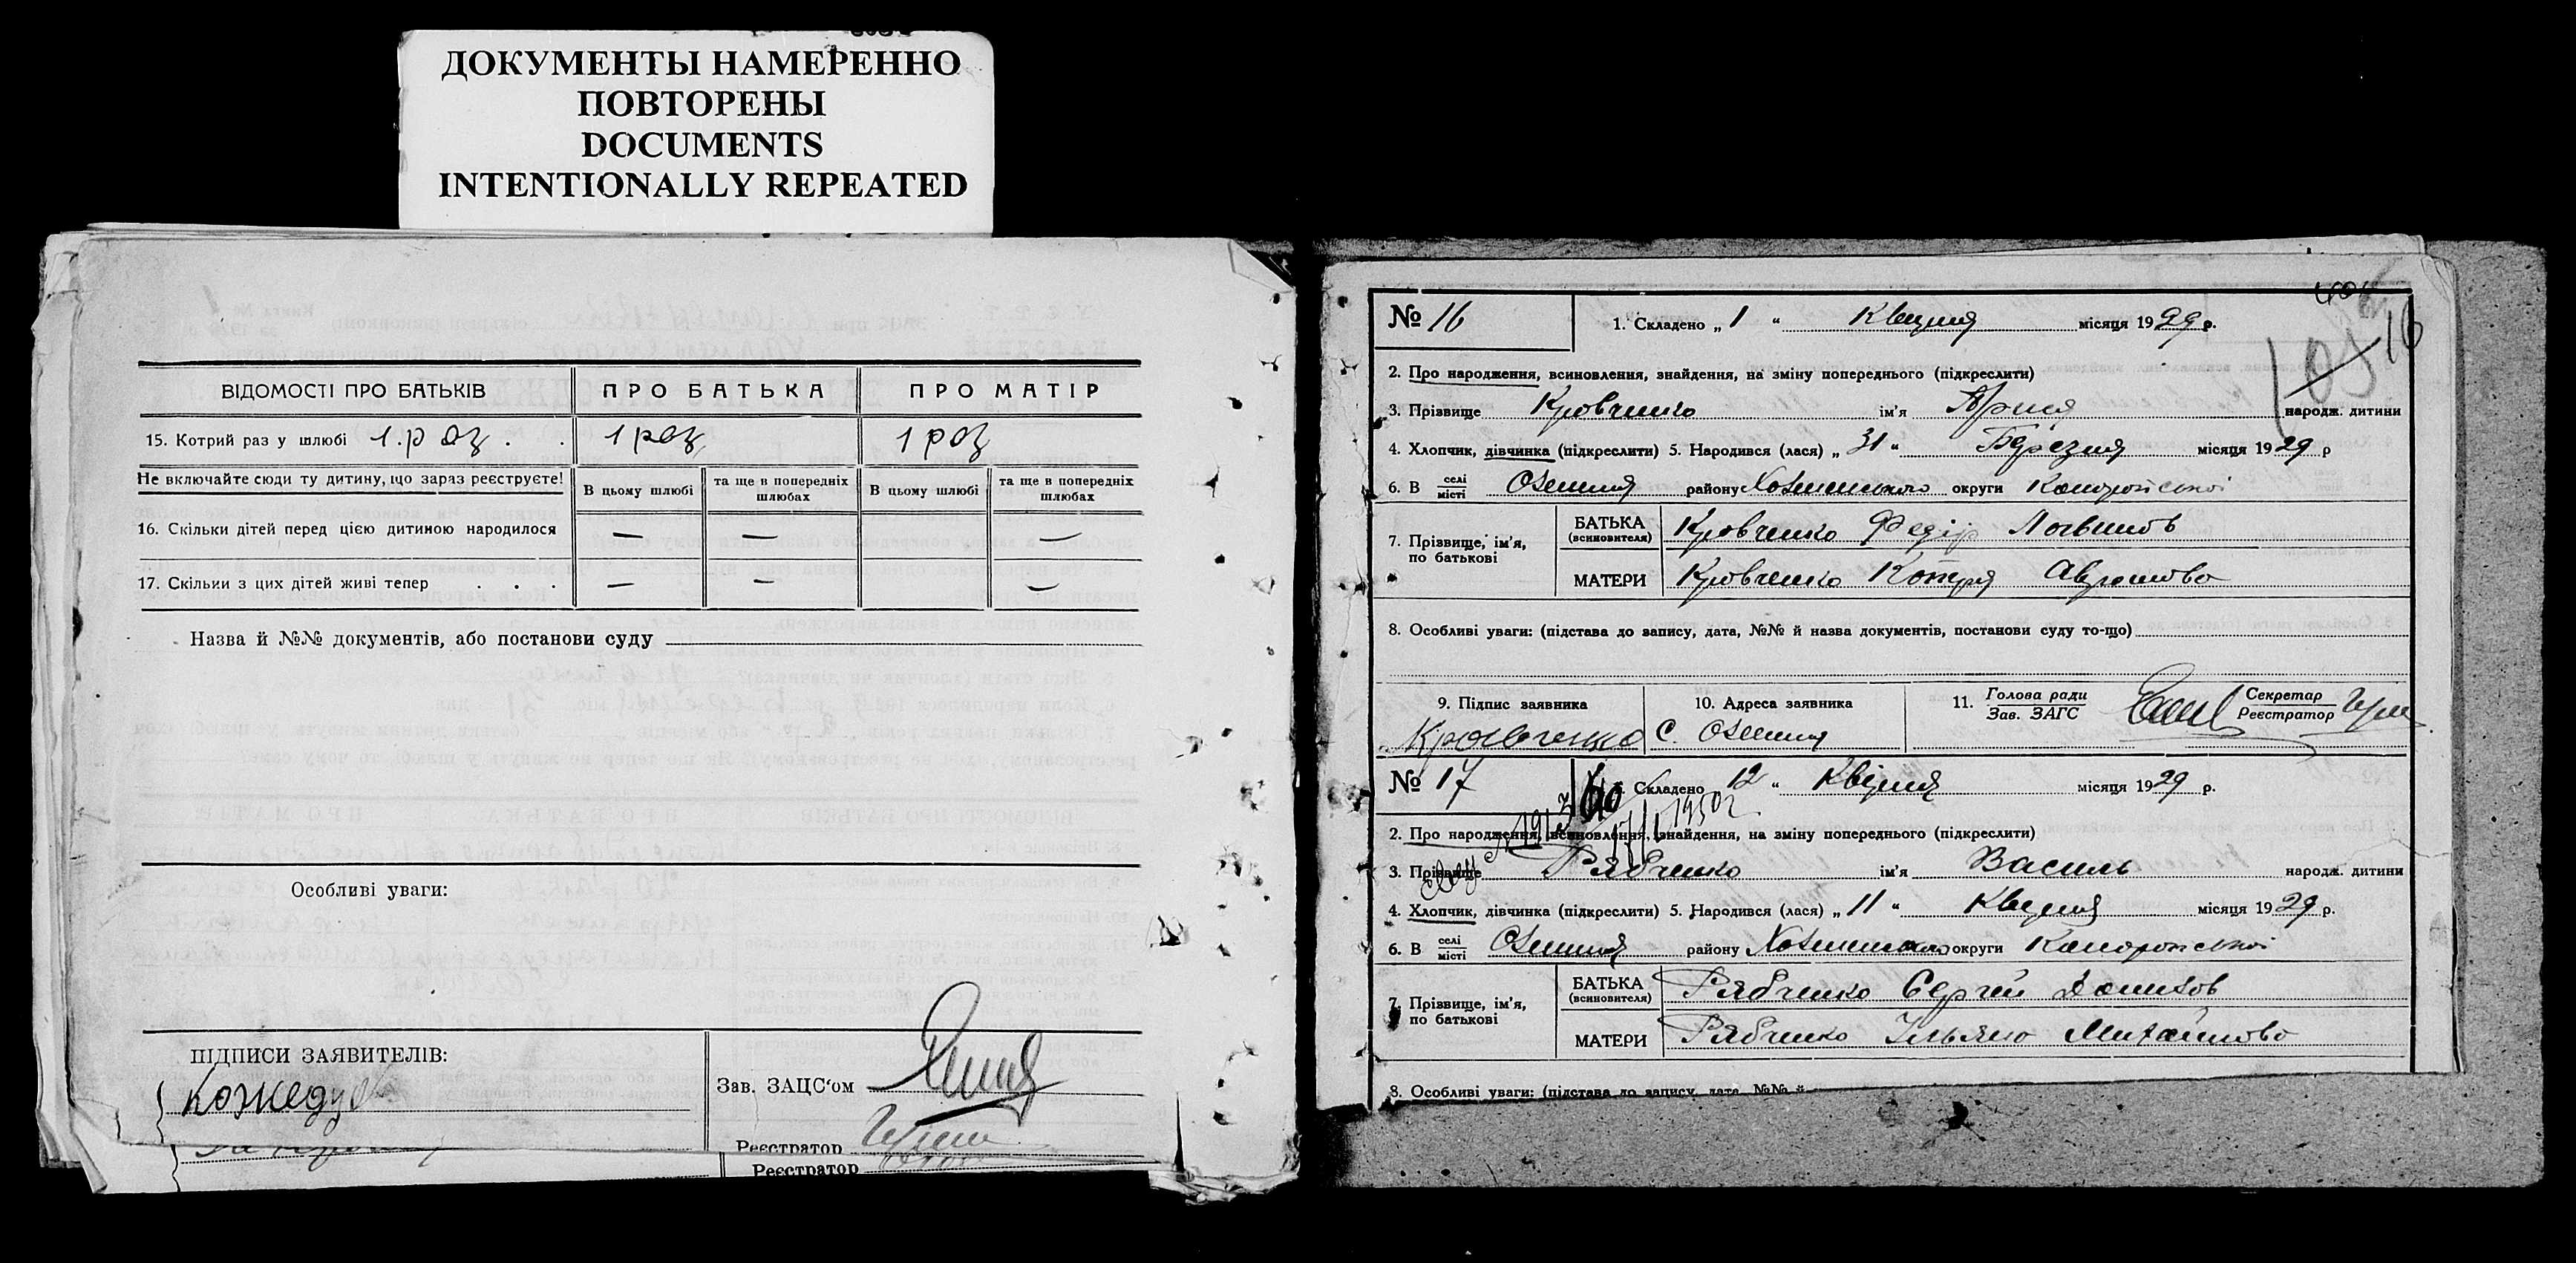 ДОКУМЕНТЫ НАМЕРЕННО
ПОВТОРЕНЫ
DOCUMENTS
INTENTIONALLY REPEATED
ВІДОМОСТІ ПРО БАТЬКІВ ПРО БАТЬКА ПРО МАТІР
15. Котрий раз у шлюбі 1. раз . . 1 раз 1 раз
Не включайте сюди ту дитину, що зараз реєструєте! В цьому шлюбі та ще в попередніх шлюбах В цьому шлюбі та ще в попередніх шлюбах
16. Скільки дітей перед цією дитиною народилося — — —
17. Скільки з цих дітей живі тепер . . . — — —
Назва й №№ документів, або постанови суду
Особливі уваги:
ПІДПИСИ ЗАЯВИТЕЛІВ:
Кожедуб
Зав. ЗАЦС'ом
Реєстратор
Реєстратор
№ 16 1. Складено „ 1 “ Квітня місяця 1929 р.
16
105
2. Про народження, всиновлення, знайдення, на зміну попереднього (підкреслити)
3. Прізвище Кровченко ім'я народж. дитини
4. Хлопчик, дівчинка (підкреслити) 5. Народився (лася) „ 31 “ Березня місяця 1929 р
6. В селі місті району округи
7. Прізвище, ім'я, по батькові
БАТЬКА (всиновителя) Кровченко Федір Логвинов
МАТЕРИ Кровченко Котря
8. Особливі уваги: (підстава до запису, дата, №№ й назва документів, постанови суду то-що)
9. Підпис заявника 10. Адреса заявника 11. Голова ради Зав. ЗАГС Секретар Реєстратор
Кровченко с.
№ 17 Складено 12 “ Квітня місяця 1929 р.
2. Про народження, всиновлення, знайдення, на зміну попереднього (підкреслити)
3. Прізвище Рябченко ім'я Василь народж. дитини
4. Хлопчик, дівчинка (підкреслити) 5. Народився (лася) „ 11 “ Квітня місяця 1929 р.
6. В селі місті району округи
7. Прізвище, ім'я, по батькові
БАТЬКА (всиновителя) Рябченко Сергій
МАТЕРИ Рябченко Ульяна Михайлово
8. Особливі уваги: (підстава до запису, дата, №№ й